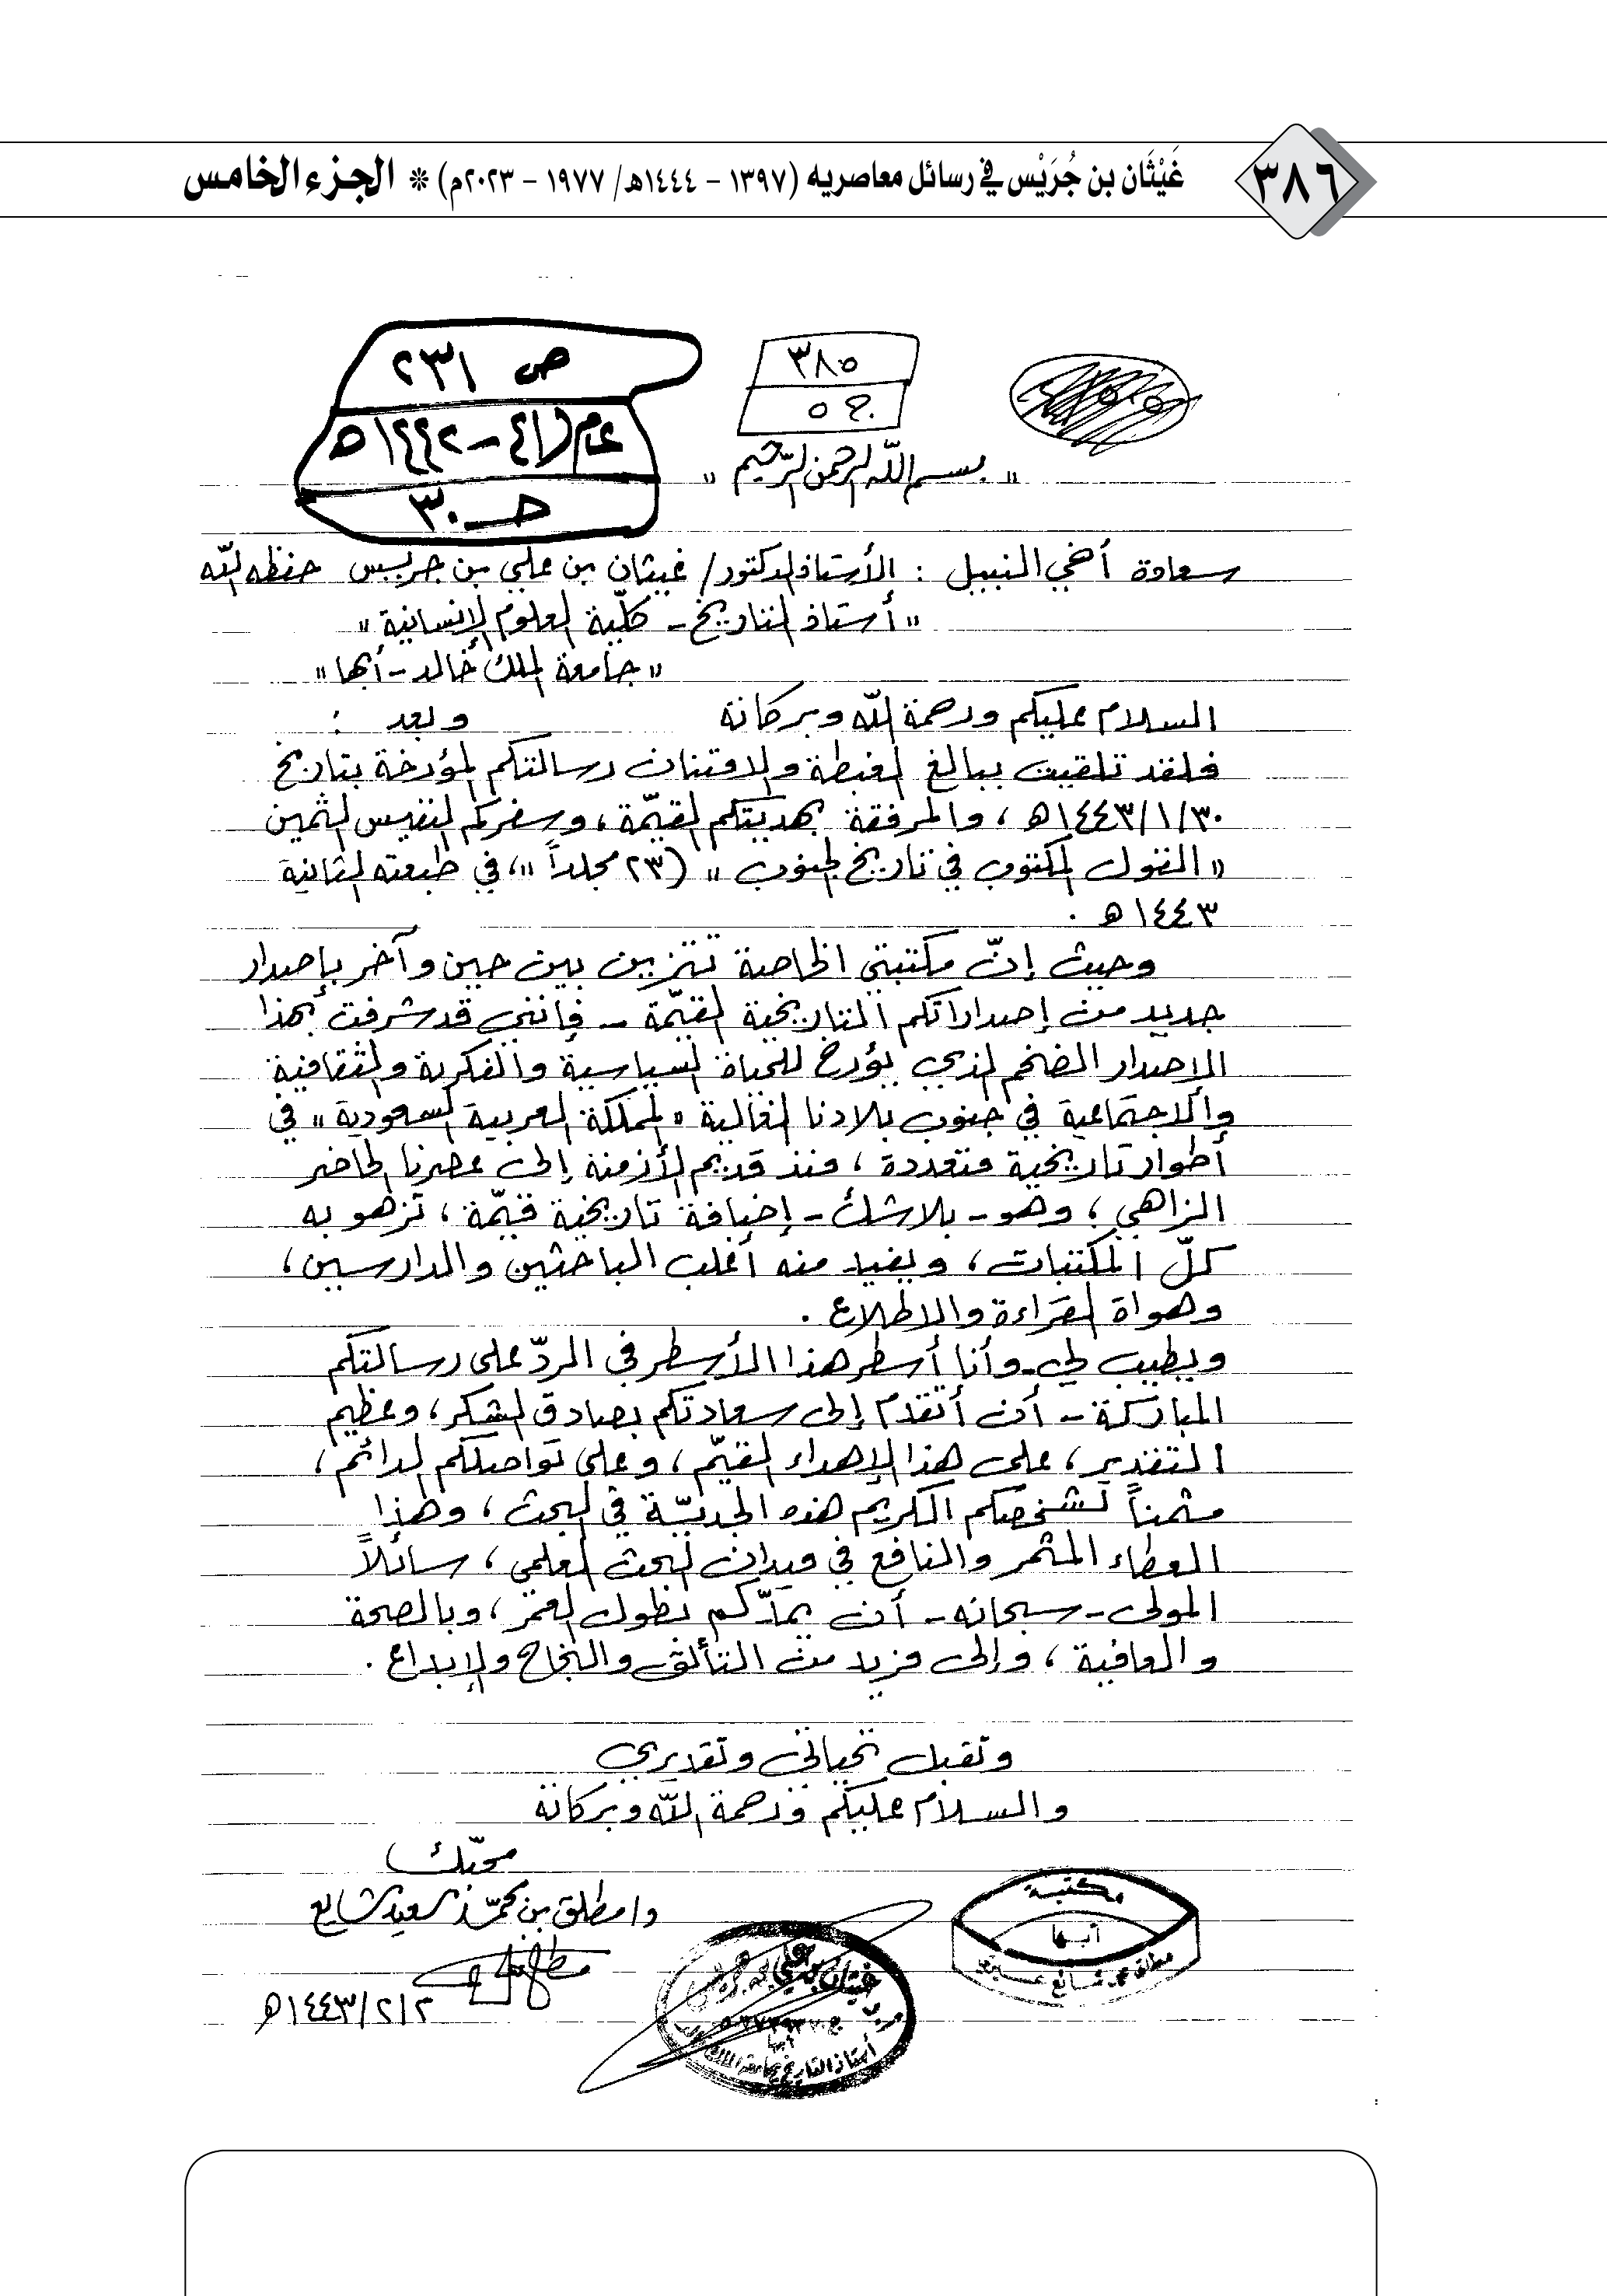 ٣٨٦
غَيْثَان بن جُرَيْس في رسائل معاصريه (١٣٩٧ - ١٤٤٤هـ/ ١٩٧٧ - ٢٠٢٣م) * الجزء الخامس
ص ٢٣١
٣٨٥
عام (٤١ - ١٤٤٢هـ
حـ ٣٠
" بسم الله الرحمن الرحيم "
سعادة أخي النبيل : الأستاذ الدكتور/ غيثان بن علي بن جريس حفظه الله
" أستاذ التاريخ - كلّية العلوم الإنسانية "
" جامعة الملك خالد - أبها "
السلام عليكم ورحمة الله وبركاته وبعد :
فلقد تلقيت ببالغ الغبطة والامتنان رسالتكم المؤرخة بتاريخ
١٤٤٣/١/٣٠هـ ، والمرفقة بهديتكم القيّمة ، وسفركم النفيس الثمين
" القول المكتوب في تاريخ الجنوب " (٢٣ مجلداً "، في طبعته الثانية
١٤٤٣هـ .
وحيث إنّ مكتبتي الخاصة تتزين بين حين وآخر بإصدار
جديد من إصداراتكم التاريخية القيّمة - فإنني قد شرفت بهذا
الإصدار الضخم الذي يؤرخ للحياة السياسية والفكرية والثقافية
والاجتماعية في جنوب بلادنا الغالية " المملكة العربية السعودية " في
أطوار تاريخية متعددة ، منذ قديم الأزمنة إلى عصرنا الحاضر
الزاهي ؛ وهو - بلا شك - إضافة تاريخية قيّمة ، تزهو به
كلّ المكتبات ، ويفيد منه أغلب الباحثين والدارسين ،
وهواة القراءة والاطلاع .
ويطيب لي - وأنا أسطر هذا الأسطر في الردّ على رسالتكم
المباركة - أن أتقدم إلى سعادتكم بصادق الشكر ، وعظيم
التقدير ، على هذا الإهداء القيّم ، وعلى تواصلكم الدائم ،
مثمناً لشخصكم الكريم هذه الجديّة في البحث ، وهذا
العطاء المثمر والنافع في ميدان البحث العلمي ، سائلاً
المولى - سبحانه - أن يمدّكم بطول العمر ، وبالصحة
والعافية ، وإلى مزيد من التألق والنجاح والإبداع .
وتقبل تحياتي وتقديري
والسلام عليكم ورحمة الله وبركاته
محبّك
د/ مطلق بن محمّد سعيد شايع
١٤٤٣/٢/٢هـ
مكتبة
أبها
مطلق محمد شايع عسيري
غيثان بن علي بن جريس
أستاذ التاريخ بجامعة الملك